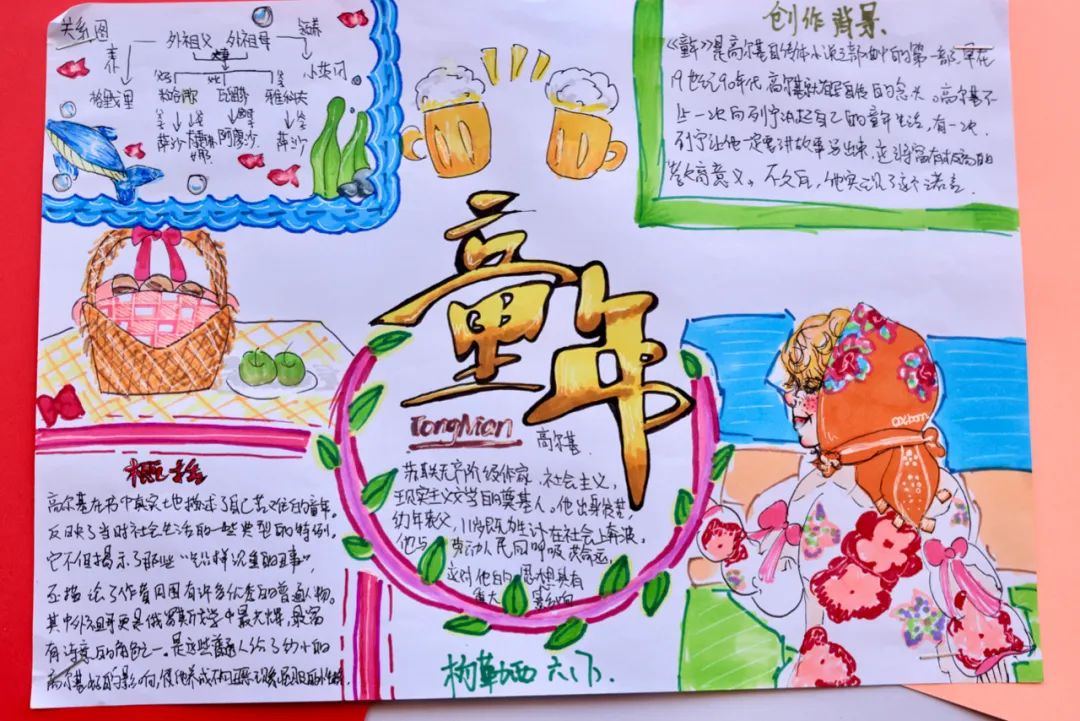 关系图
外祖父 外祖母
收养
格里
小茨冈
萨沙
萨沙
创作背景
《童年》是高尔基自传体小说三部曲中的第一部。早在
19世纪90年代，高尔基就有写自传的念头。高尔基不
止一次向列宁讲起自己的童年生活，有一次，
列宁让他一定要讲故事写出来，这将富有极高的
教育意义。不久后，他实现了这个诺言。
童年
TongNian
高尔基
苏联无产阶级作家，社会主义，
现实主义文学的奠基人。他出身贫苦，
幼年丧父，11岁既为生计在社会上奔波。
他与 劳动人民同呼吸共命运，
这对他的思想具有
重大 影响
概括
高尔基在书中真实地描述了自己苦难的童年。
反映了当时社会生活的一些典型的特例，
它不但揭示了那些“铅样沉重的丑事”
还描绘了作者周围有许多优秀的普通人物。
其中外祖母更是俄罗斯文学中最光辉，最富
有诗意的角色之一。是这些普通人给了幼小的
高尔基 的影响，使他养成不向
六、下